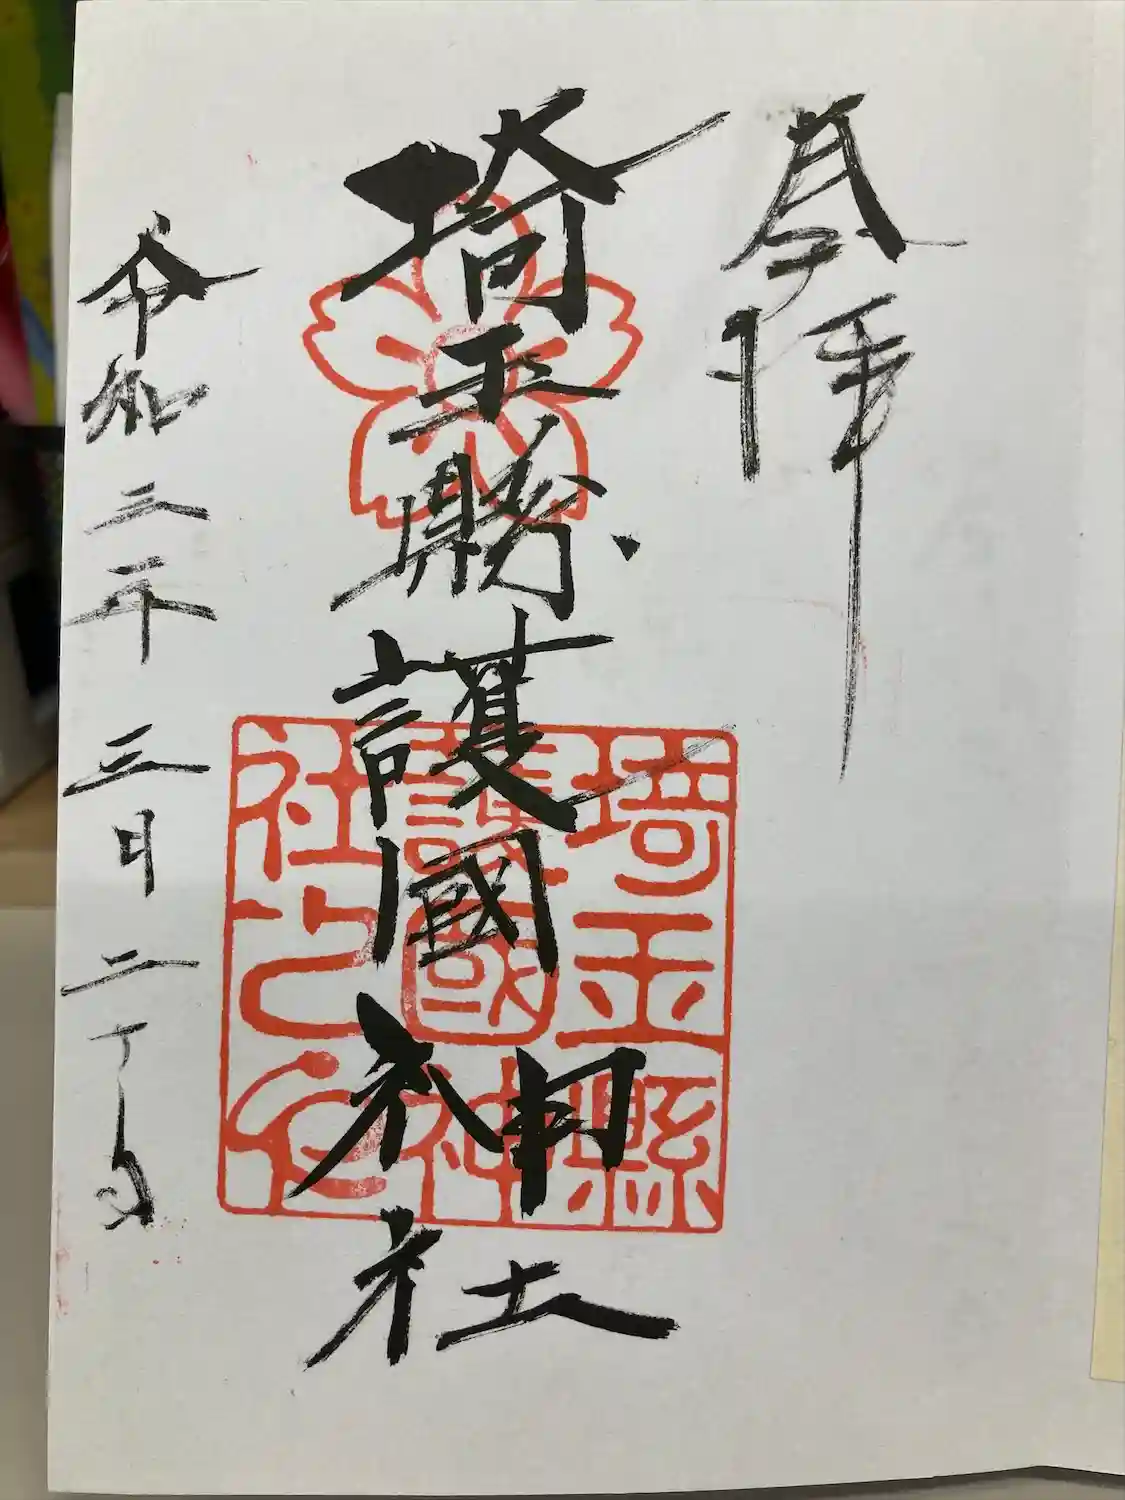 参拝
埼玉縣護國神社
令和三年三月二十日
埼玉縣
護國神
社之印